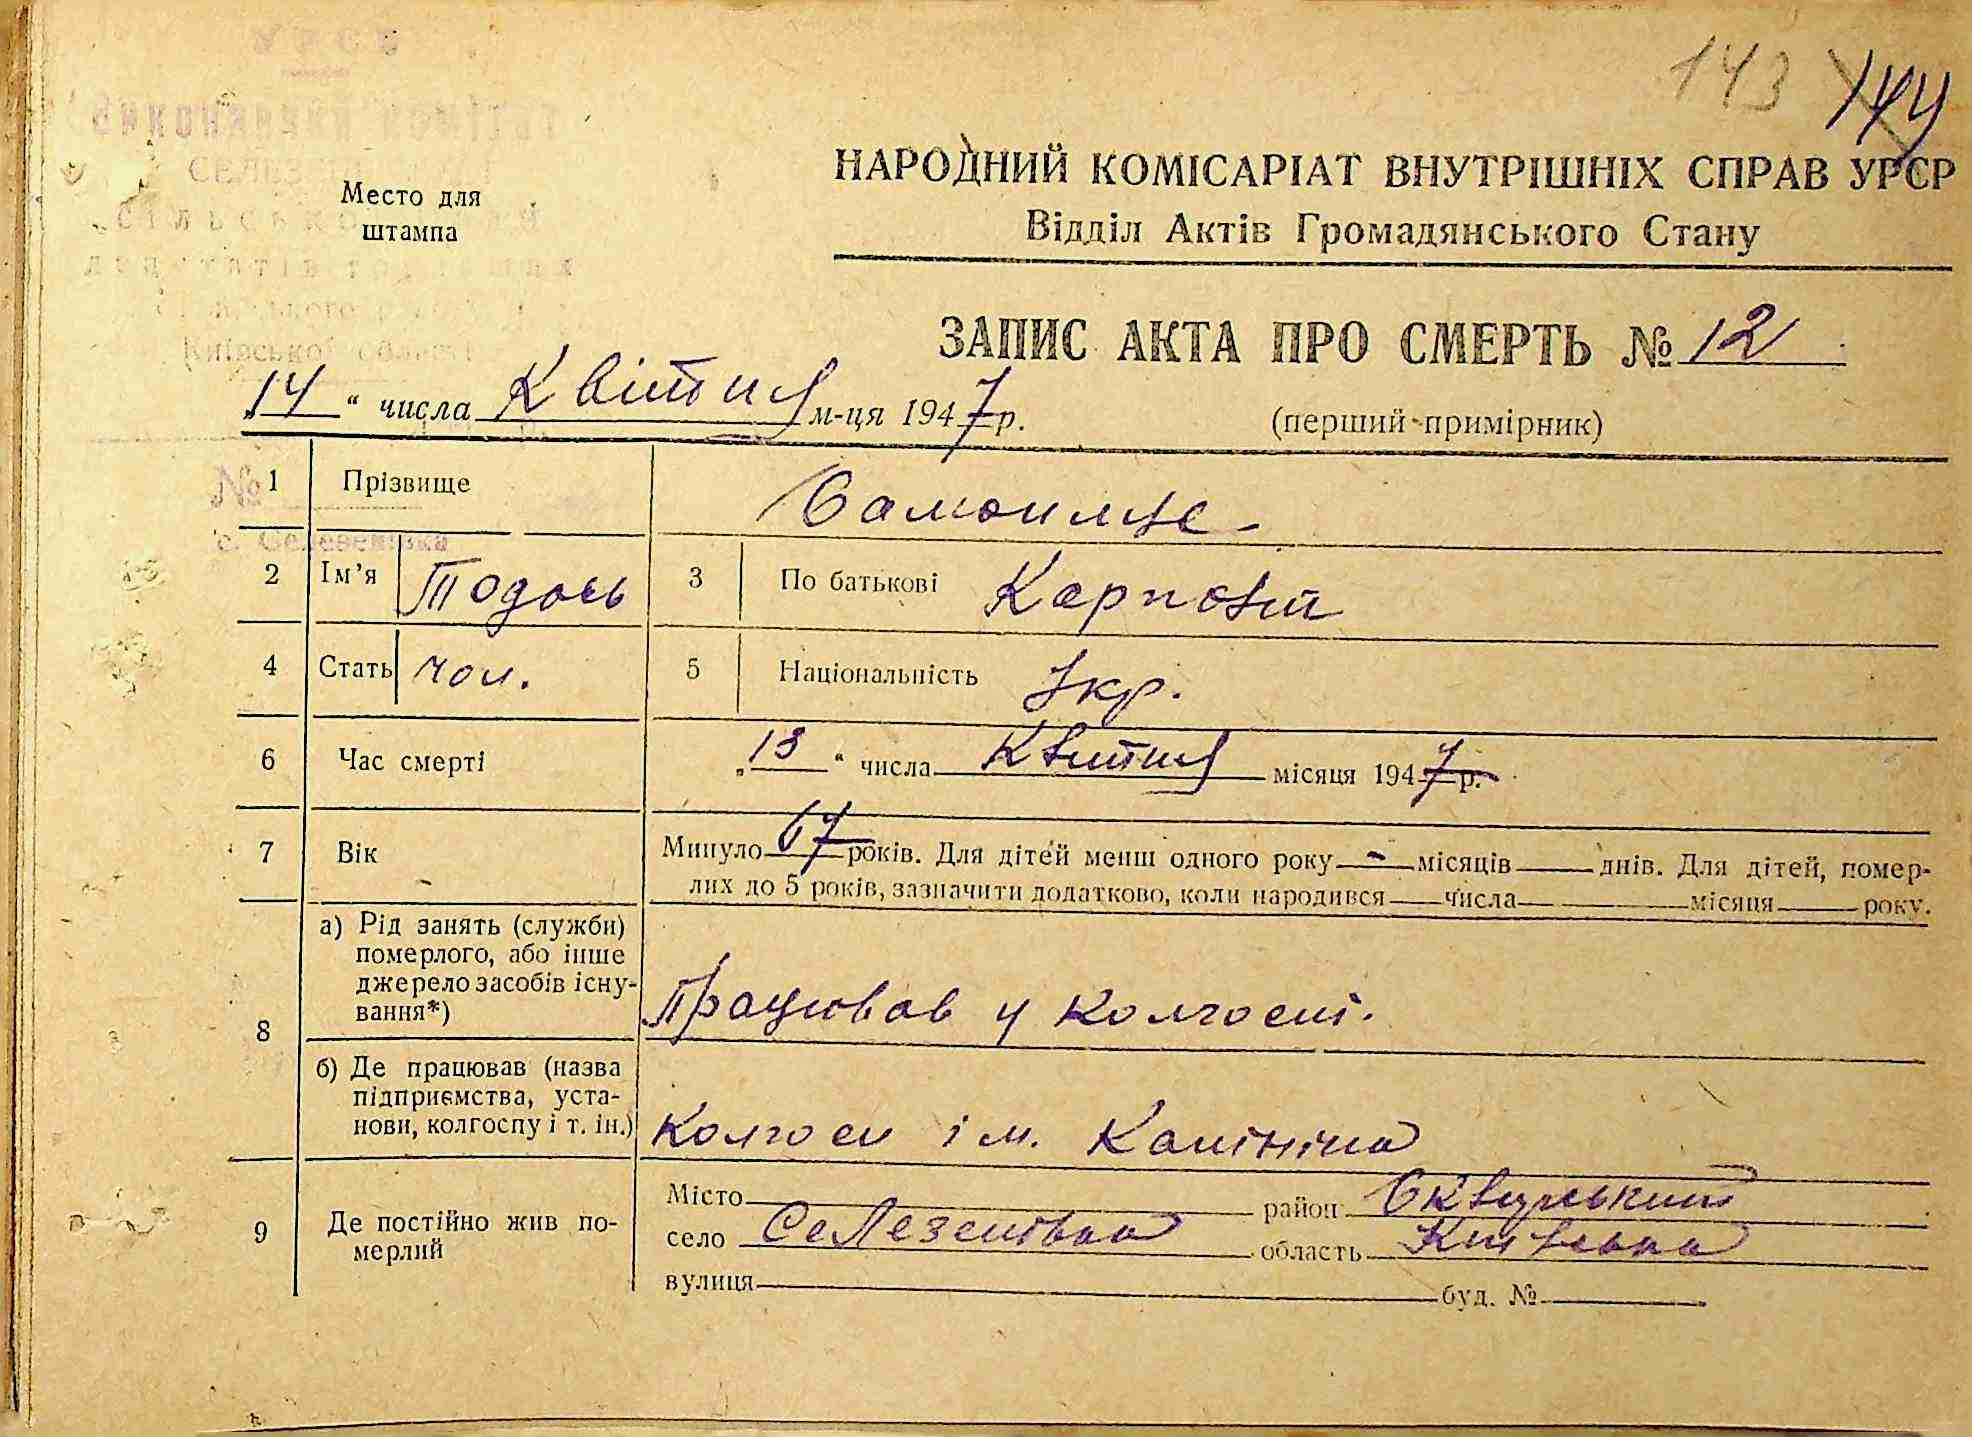 143 144
УРСР
Виконавчий комітет
Место для
штампа
НАРОДНИЙ КОМІСАРІАТ ВНУТРІШНІХ СПРАВ УРСР
Відділ Актів Громадянського Стану
Київської області
ЗАПИС АКТА ПРО СМЕРТЬ № 12
„14“ числа Квітня м-ця 1947 р.
(перший примірник)
№
1 Прізвище
с. Селезенівка
2 Ім’я Тодось 3 По батькові Карпович
4 Стать чол. 5 Національність Укр.
6 Час смерті „13“ числа Квітня місяця 1947 р.
7 Вік Минуло 67 років. Для дітей менш одного року - місяців днів. Для дітей, помер-
лих до 5 років, зазначити додатково, коли народився числа місяця року.
8 а) Рід занять (служби)
померлого, або інше
джерело засобів існу-
вання*) Працював у колгоспі.
б) Де працював (назва
підприємства, уста-
нови, колгоспу і т. ін.) Колгосп ім. Калініна
9 Де постійно жив по-
мерлий
Місто район Сквирський
село Селезенівка область Київська
вулиця буд. №